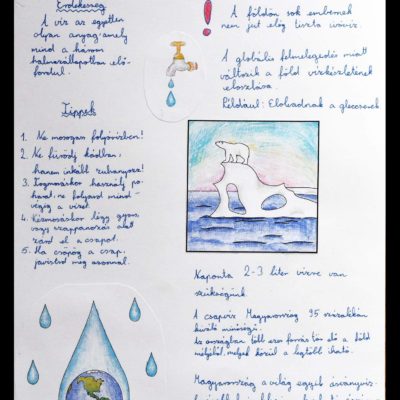 Érdekesség
A víz az egyetlen
olyan anyag, amely
mind a három
halmazállapotban elő-
fordul.
Tippek
1. Ne mosogass folyóvízben!
2. Ne fürödj kádban,
hanem inkább zuhanyozz!
3. Fogmosáskor használj po-
harat, ne folyasd mind-
végig a vizet.
4. Kézmosáskor légy gyors,
vagy szappanozás alatt
zárd el a csapot.
5. Ha csöpög a csap,
javítsd meg azonnal.
!
A földön sok embernek
nem jut elég tiszta ivóvíz.
A globális felmelegedés miatt
változik a föld vízkészletének
eloszlása.
Például: Elolvadnak a gleccserek
Naponta 2-3 liter vízre van
szükségünk.
A csapvíz Magyarország 95 százalékán
kiváló minőségű.
Az országban több ezer forrás tör elő a föld
mélyéből, melyek közül a legtöbb iható.
Magyarország a világ egyik ásványvíz-